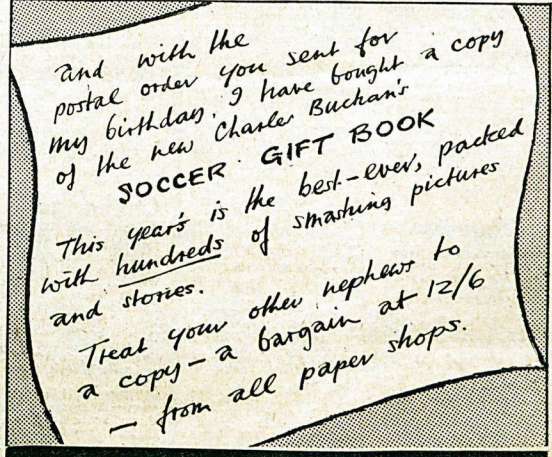 and with the
postal order you sent for
my birthday. I have bought a copy
of the new Charles Buchan's
SOCCER GIFT BOOK
This year's is the best-ever, packed
with hundreds of smashing pictures
and stories.
Treat your other nephews to
a copy - a bargain at 12/6
- from all paper shops.